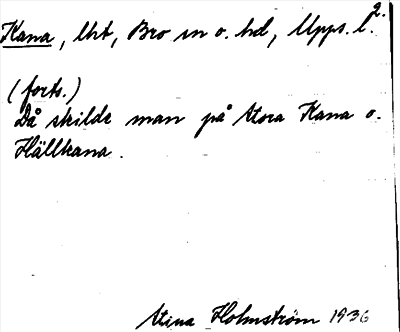 2.
Kana, Uht, Bro sn o. hd, Upps. l.
(forts.)
Då skilde man på Stora Kana o.
Hällkana.
Stina Holmström 1936